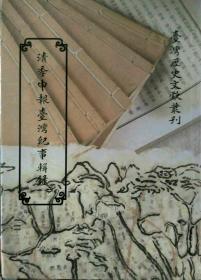 臺灣歷史文獻叢刊
清季申報臺灣紀事輯錄